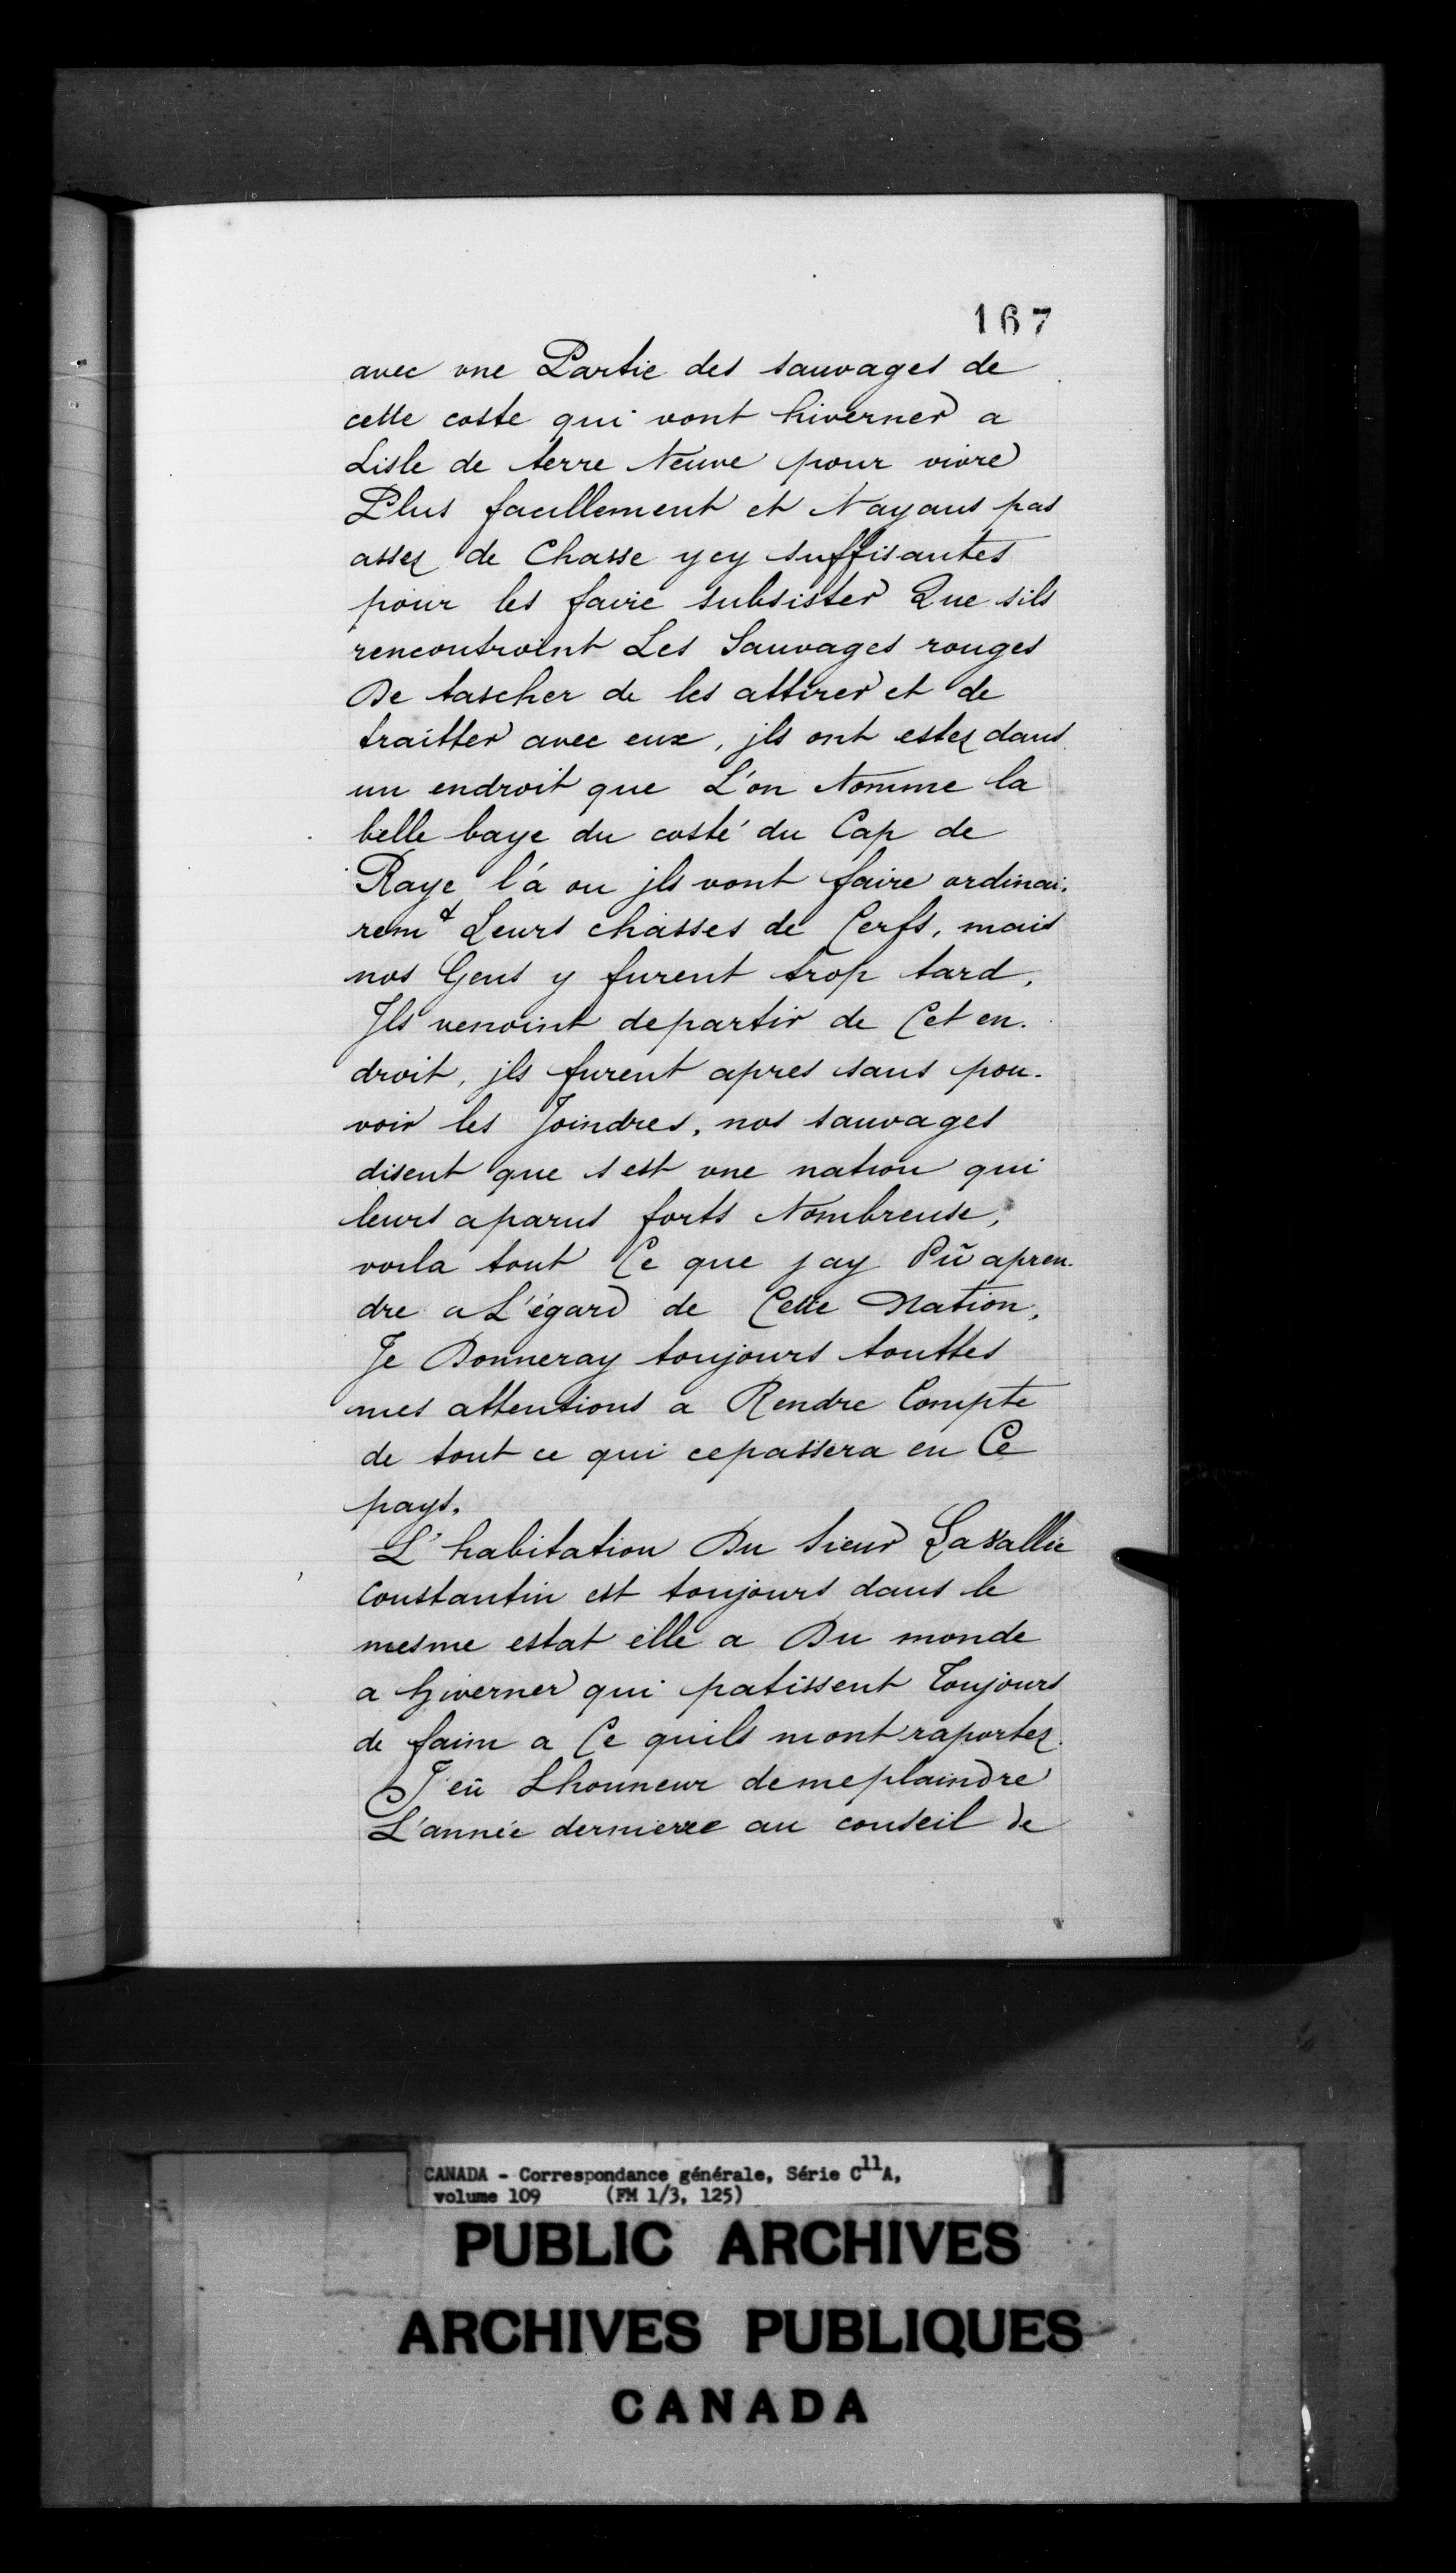 167
avec vne Partie des sauvages de
cette coste qui vont hiverner a
Lisle de terre Neuve pour vivre
Plus facillement et Nayans pas
assez de Chasse ycy suffisantes
pour les faire subsister Que sils
rencontroint Les Sauvages rouges
De tascher de les attirer et de
traitter avec eux, jls ont estez dans
un endroit que L'on Nomme la
belle baye du costé du Cap de
Raye l'a ou jls vont faire ordinai.
remt Leurs chasses de Cerfs, mais
nos Gens y furent trop tard,
Jls venoint departir de Cet en.
droit, jls furent apres sans pou.
voir les Joindres, nos sauvages
disent que s est vne nation qui
leurs aparus forts Nombreuse,
voila tout Ce que jay Pû apren.
dre a L'égard de Cette Nation,
Je Donneray toujours touttes
mes attentions a Rendre Compte
de tout ce qui cepassera en Ce
pays.
L'habitation Du Sieur Lavallée
Constantin est toujours dans le
mesme estat elle a Du monde
a hiverner qui patissent Toujours
de faim a Ce quils mont raportez.
J'eû Lhonneur demeplaindre
L'année derniere au conseil de
CANADA - Correspondance générale, Série C11A,
volume 109 (FM 1/3, 125)
PUBLIC ARCHIVES
ARCHIVES PUBLIQUES
CANADA